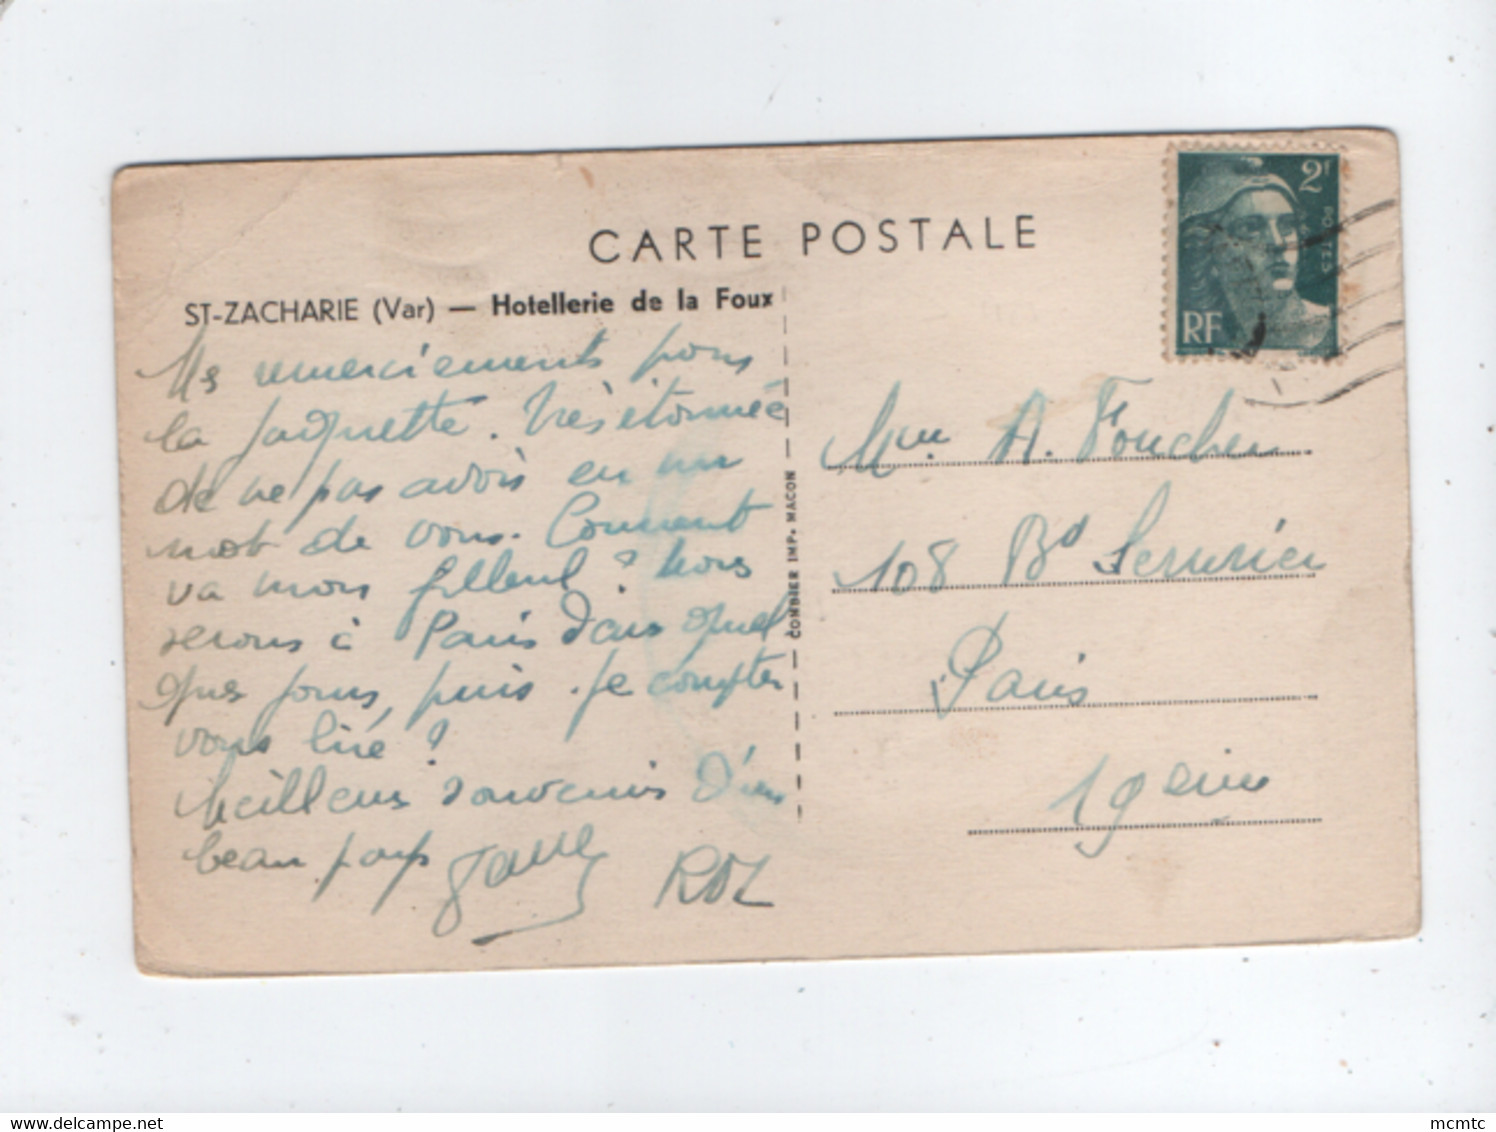 CARTE POSTALE
ST-ZACHARIE (Var) — Hotellerie de la Foux
2F
POSTES
RF
Mes remerciements pour
la jaquette. Très étonnée
de ne pas avoir eu un
mot de vous. Comment
va mon filleul ? Nous
serons à Paris dans quel
ques jours, puis-je compter
vous lire ?
Meilleurs souvenirs d'un
beau pays
COMBIER IMP. MACON
Mme A. Foucher
108 Bd Serurier
Paris
19eme
mcmtc